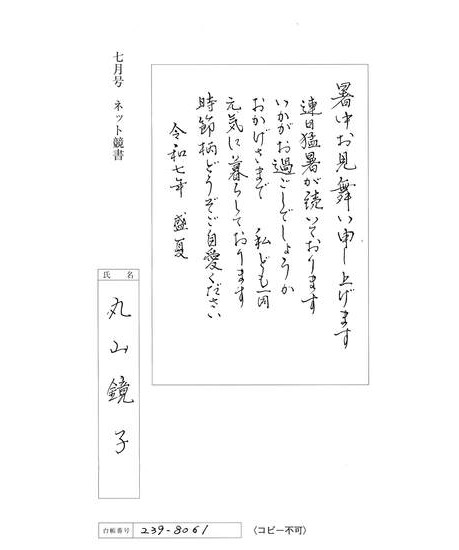 七月号 ネット競書
暑中お見舞い申し上げます
連日猛暑が続いております
いかがお過ごしでしょうか
おかげさまで 私ども一同
元気に暮らしております
時節柄どうぞご自愛ください
令和七年 盛夏
氏名
丸山鏡子
台帳番号 239-8061 〈コピー不可〉